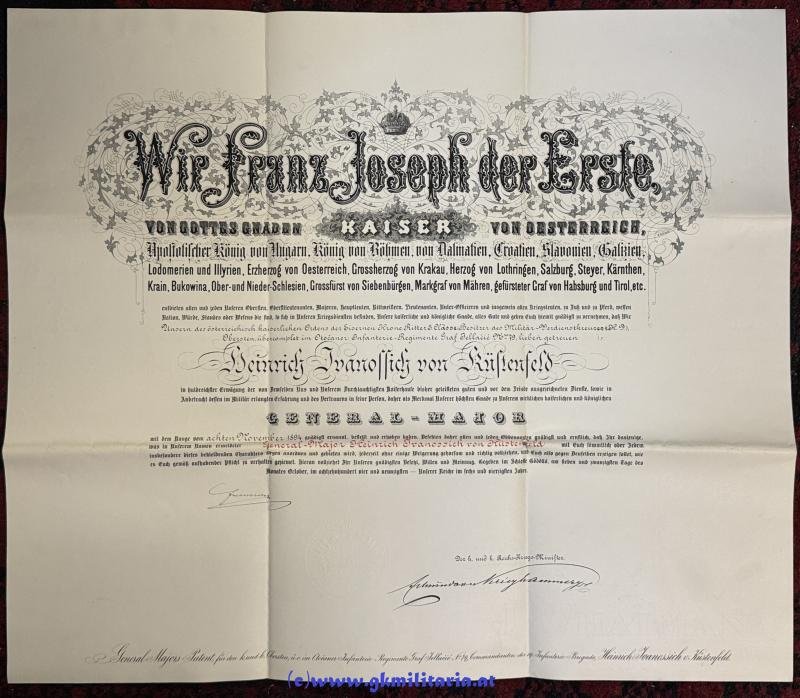 Wir Franz Joseph der Erste,
VON GOTTES GNADEN KAISER VON OESTERREICH,
Apostolischer König von Ungarn, König von Böhmen, von Dalmatien, Croatien, Slavonien, Galizien,
Lodomerien und Illyrien, Erzherzog von Oesterreich, Grossherzog von Krakau, Herzog von Lothringen, Salzburg, Steyer, Kärnthen,
Krain, Bukowina, Ober- und Nieder-Schlesien, Grossfürst von Siebenbürgen, Markgraf von Mähren, gefürsteter Graf von Habsburg und Tirol, etc.
entbieten allen und jeden Unseren Obersten, Oberstlieutenanten, Majoren, Hauptleuten, Rittmeistern, Lieutenanten, Unter-Officieren und insgemein allen Kriegsleuten, zu Fuß und zu Pferd, wessen
Nation, Würde, Standes oder Wesens die sind, so sich in Unseren Kriegsdiensten befinden, Unsere kaiserliche und königliche Gnade, alles Gute und geben Euch hiemit gnädigst zu vernehmen, daß Wir
Unsern des österreichisch kaiserlichen Ordens der Eisernen Krone Ritter 3. Classe, Besitzer des Militär-Verdienstkreuzes
Obersten, übercomplet im Otočaner Infanterie-Regimente Graf Jellačić No. 79, lieben getreuen
Heinrich Ivanossich von Küstenfeld
in huldreichster Erwägung der von demselben Uns und Unserem Durchlauchtigsten Kaiserhause bisher geleisteten guten und vor dem Feinde ausgezeichneten Dienste, sowie in
Anbetracht dessen im Militär erlangten Erfahrung und des Vertrauens in seine Person, daher als Merkmal Unserer höchsten Gnade zu Unserem wirklichen kaiserlichen und königlichen
GENERAL-MAJOR
mit dem Range vom achten November 1894 gnädigst ernannt, bestellt und erhoben haben. Befehlen daher allen und jeden Obbenannten gnädigst und ernstlich, daß Ihr dasjenige,
was in Unserem Namen ernannter General-Major Heinrich Ivanossich von Küstenfeld mit Euch sämmtlich oder Jedem
insbesondere dieses bekleidenden Charakters wegen anordnen und gebieten wird, jederzeit ohne einige Weigerung gehorsam und richtig vollziehet, und Euch also gegen Denselben erzeigen sollet, wie
es Euch gemäß aufhabender Pflicht zu verhalten geziemet. Hieran vollziehet Ihr Unseren gnädigsten Befehl, Willen und Meinung. Gegeben im Schloße Gödöllő, am sieben und zwanzigsten Tage des
Monates October, im achtzehnhundert vier und neunzigsten — Unserer Reiche im sechs und vierzigsten Jahre.
Der k. und k. Reichs-Kriegs-Minister.
General-Majors Patent, für den k. und k. Obersten, ü. c. im Otočaner Infanterie-Regimente Graf Jellačić No. 79, Commandanten der 19. Infanterie-Brigade, Heinrich Ivanossich v. Küstenfeld.
(c)www.gkmilitaria.at